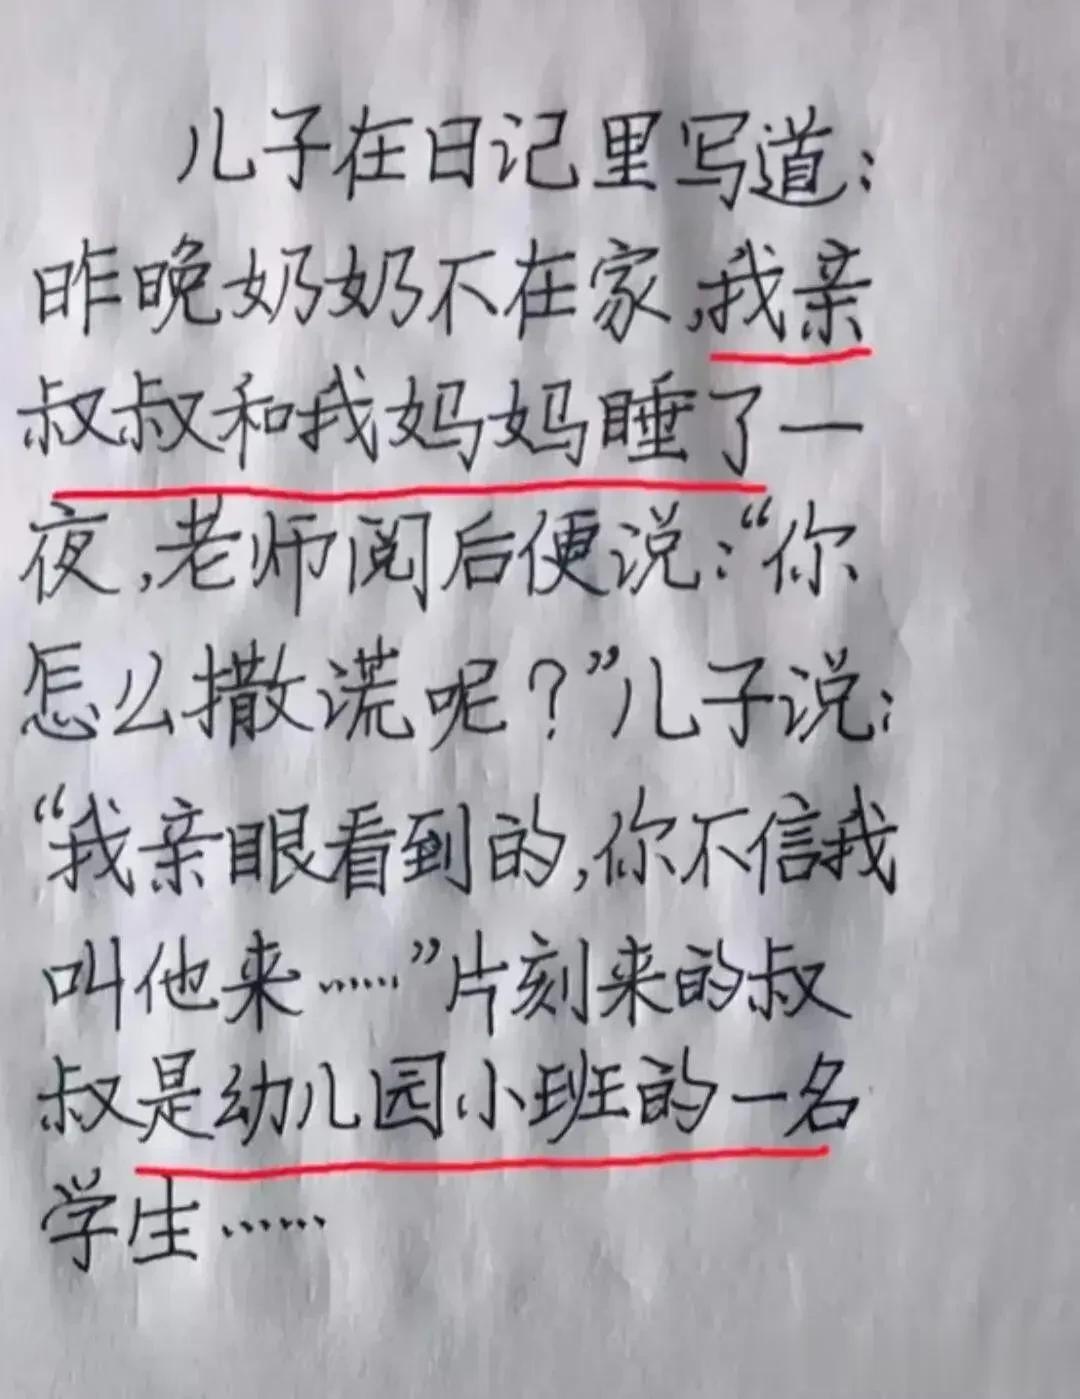 儿子在日记里写道：
昨晚奶奶不在家,我亲
叔叔和我妈妈睡了一
夜,老师阅后便说：“你
怎么撒谎呢？”儿子说：
“我亲眼看到的,你不信我
叫他来……”片刻来的叔
叔是幼儿园小班的一名
学生……